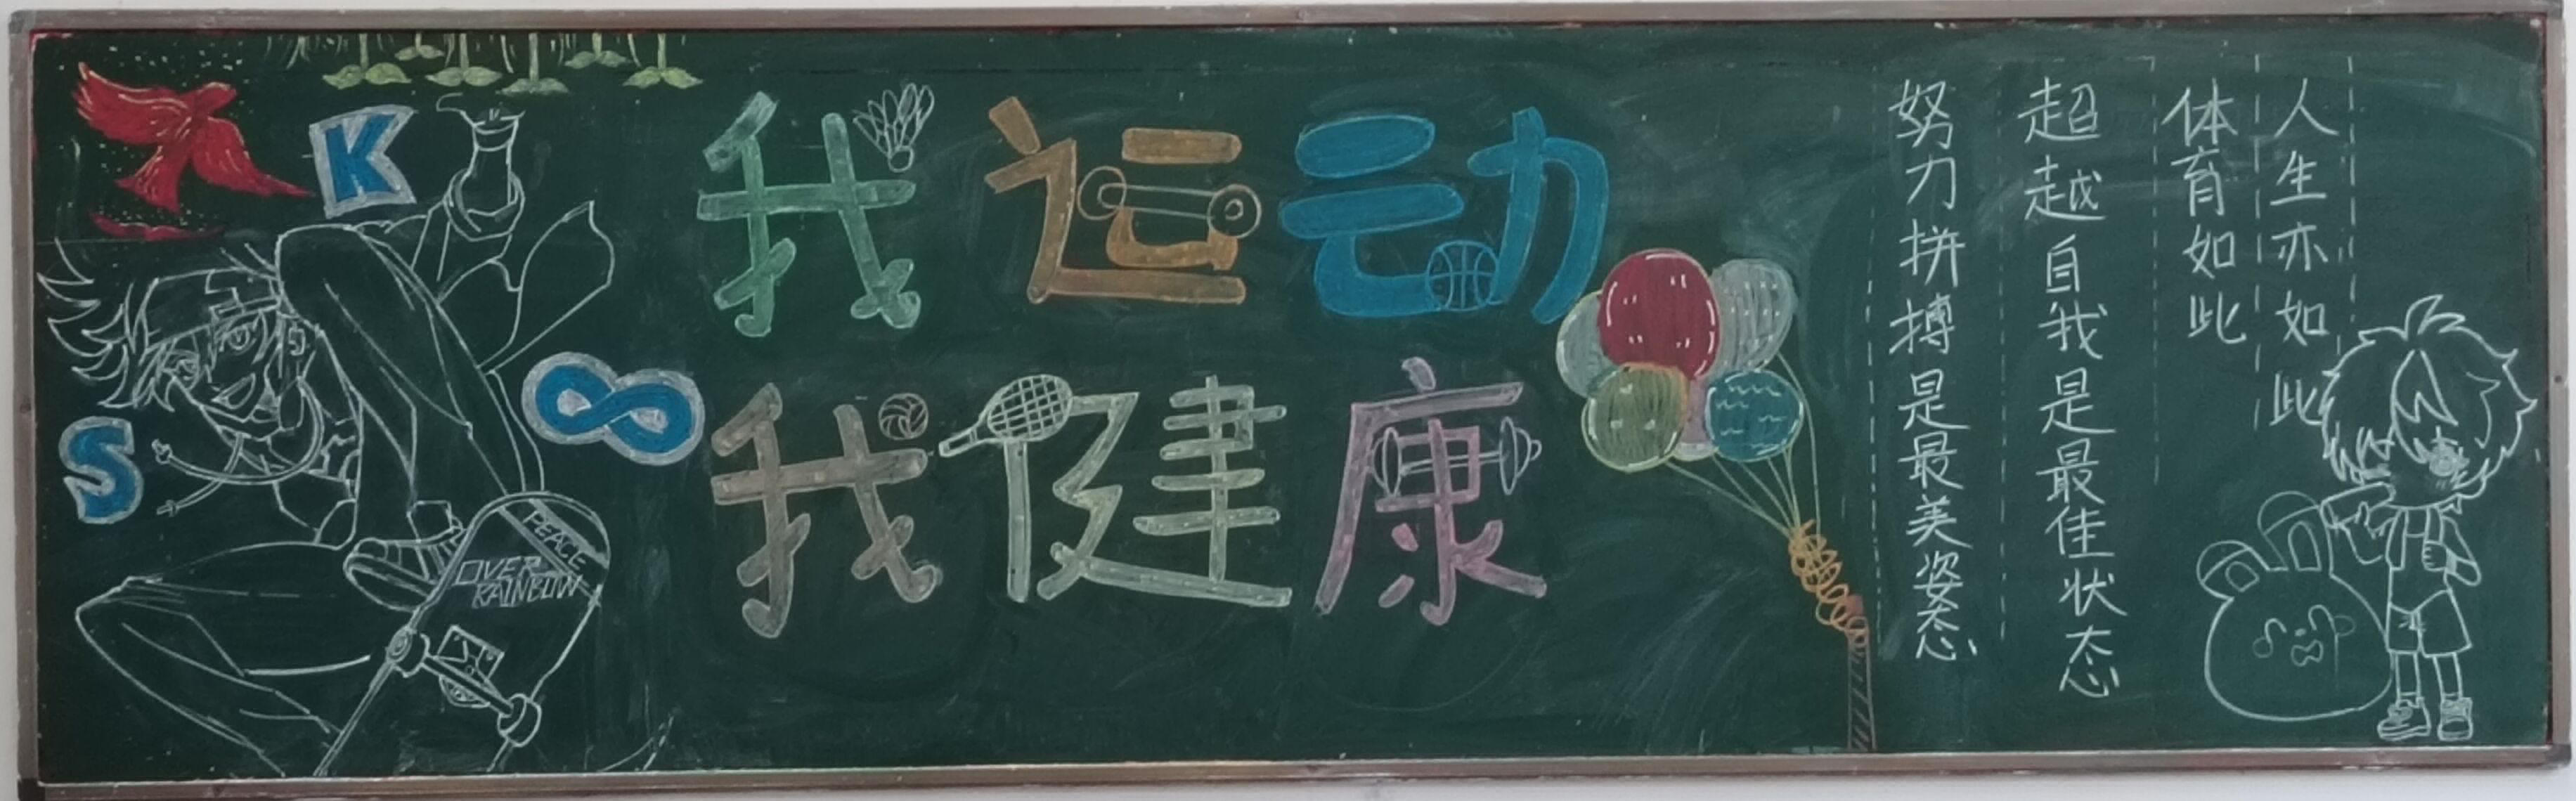 K
S
∞
PEACE
OVER
RAINBOW
我运动
我健康
人生亦如此
体育如此
超越自我是最佳状态
努力拼搏是最美姿态